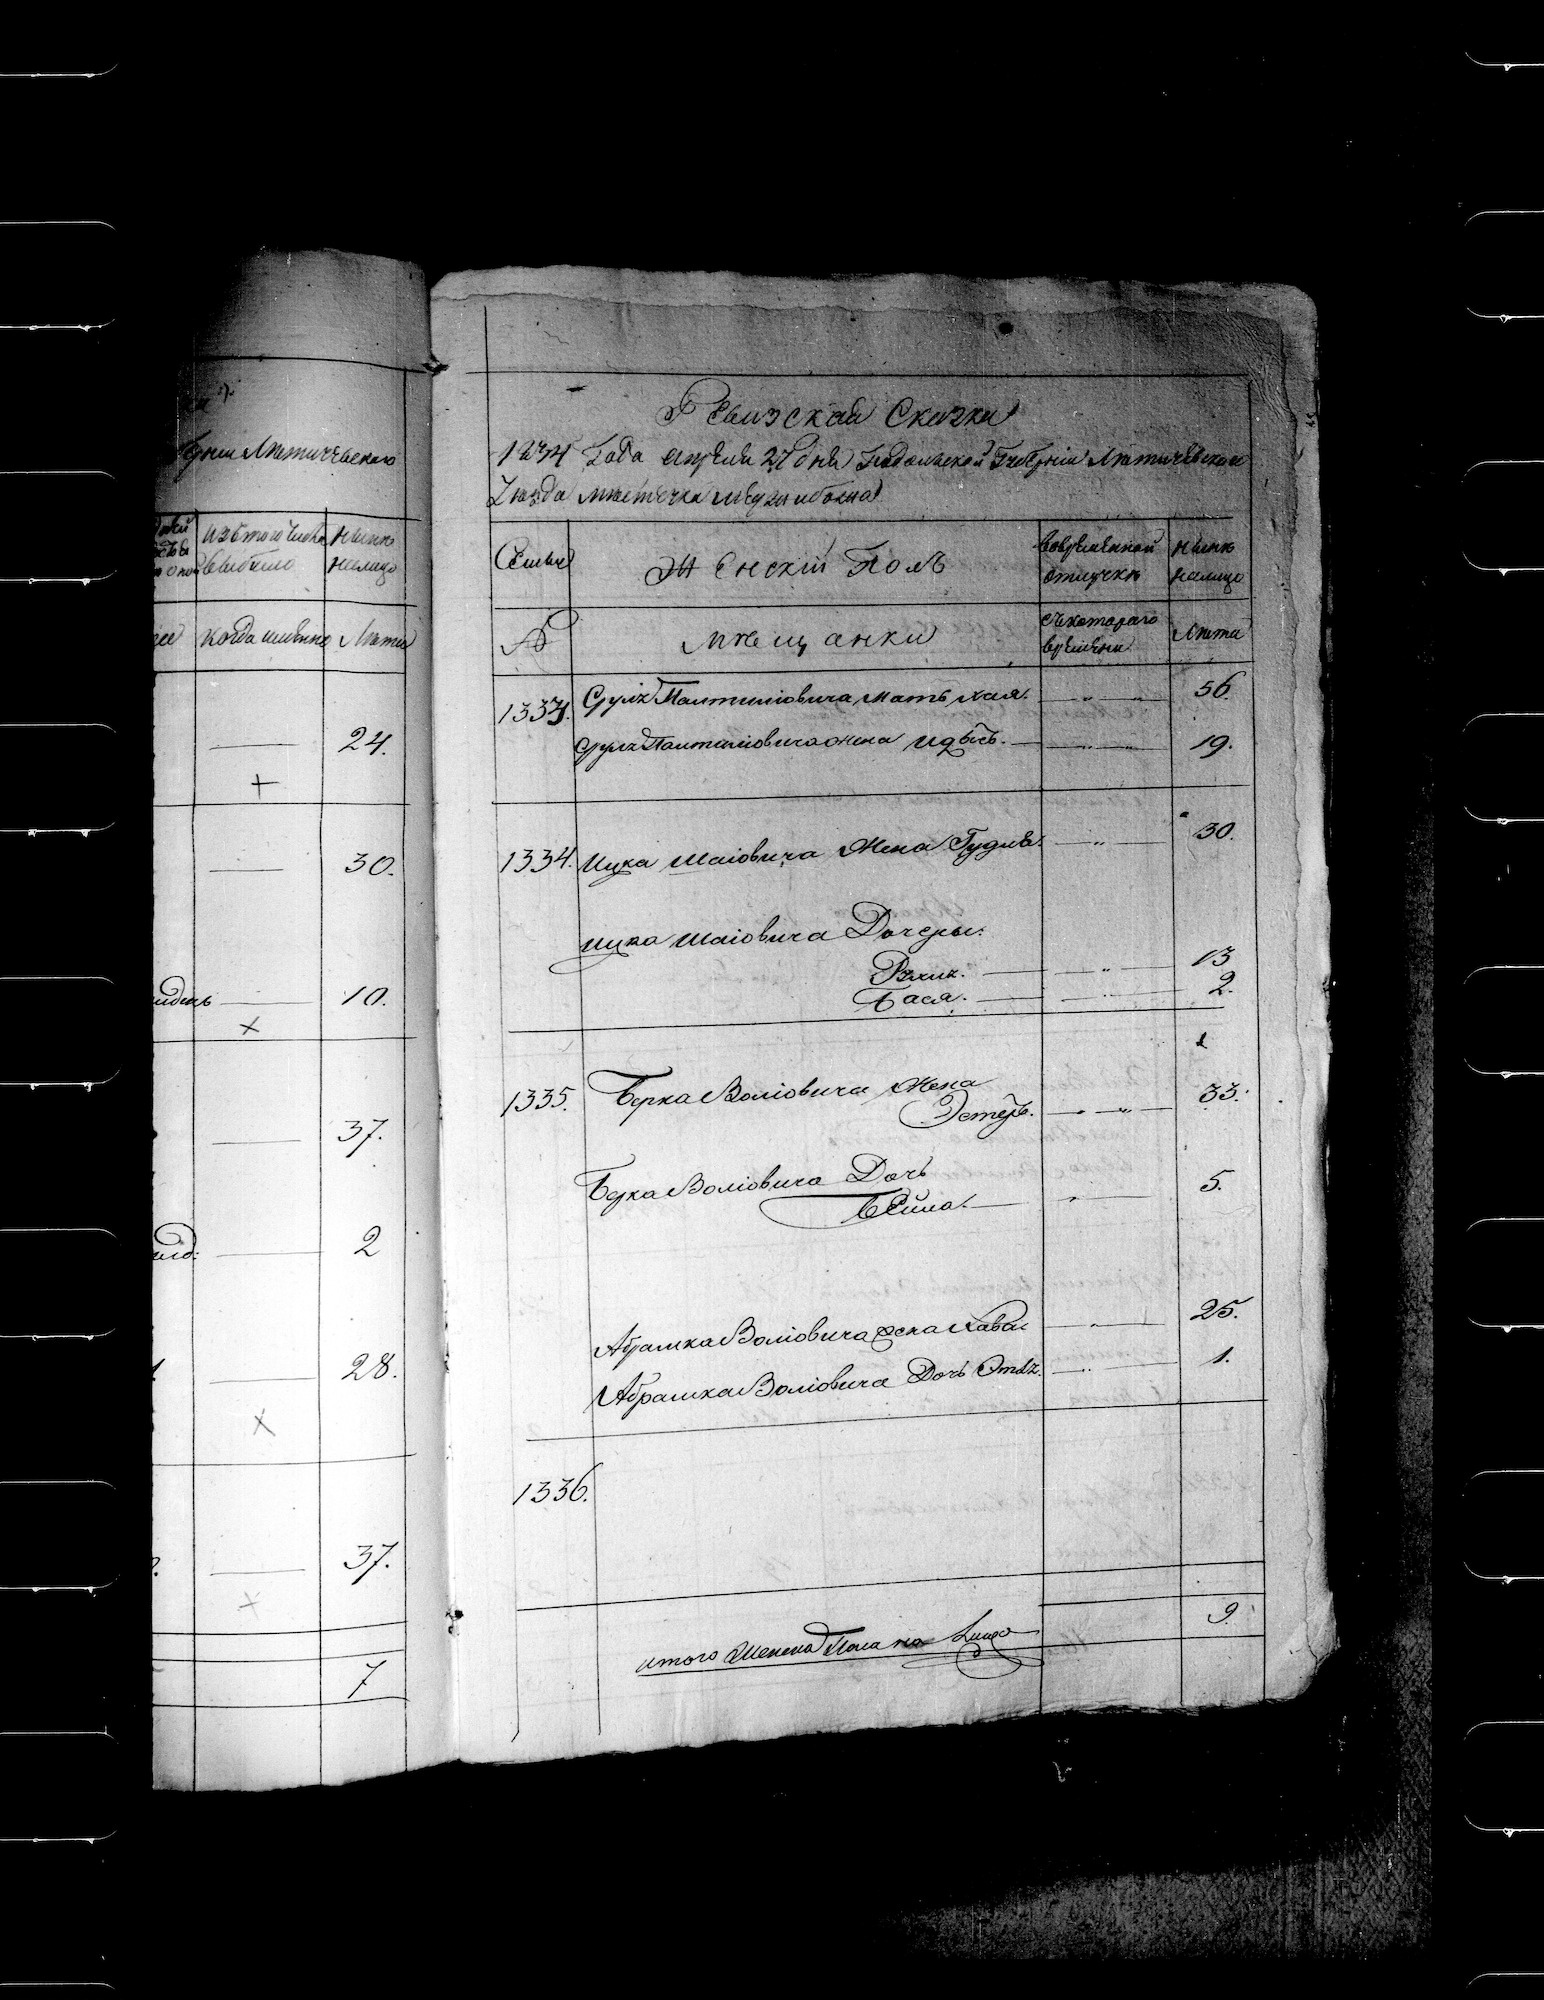 Летичевскаго
изътого числа
выбыло
ныне
налицо
когда имянно
Лета
24.
30.
10.
37.
2
28.
37.
7
Ревизская Сказка
1834 Года апреля 27 дня Подольской Губернии Летичевского
уезда местечка Меджибожа
Семьи
Женскій Полъ
вовременной
отлучке
ныне
налицо
№
мещанки
съкотораго
времяни
Лета
1333.
Сруля Палтиліовича мать Хая. 56.
Сруля Палтиліовича жена 19.
1334. Ицка Шаіовича Жена 30.
Ицка Шаіовича Дочеры.
13
Бася. 2.
1335. Берка Воліовича Жена
Эстеръ. 33.
Берка Воліовича Дочь
Бейла. 5.
Абрамка Воліовича жена Хава 25.
Абрамка Воліовича Дочь 1.
1336.
итого Женска Пола на Лицо 9.